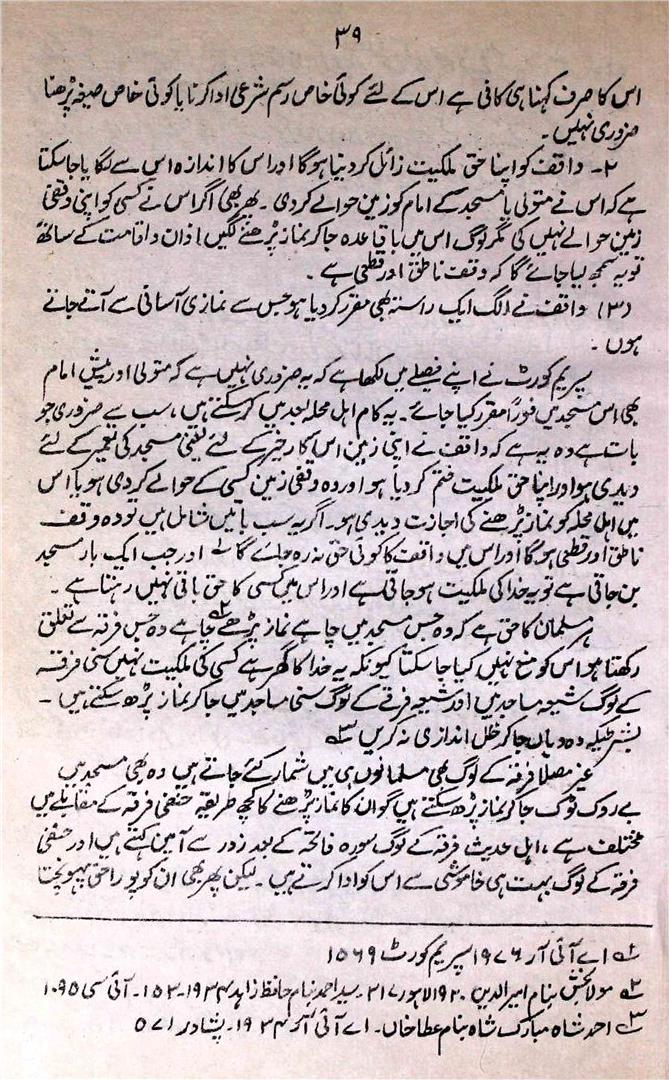 ۳۹
اس کا صرف کہنا ہی کافی ہے اس کے لئے کوئی خاص رسم شرعی ادا کرنا یا کوئی خاص صیغہ پڑھنا
ضروری نہیں۔
۲۔ واقف کو اپنا حق ملکیت زائل کر دینا ہوگا اور اس کا اندازہ اس سے لگایا جا سکتا
ہے کہ اس نے متولی یا مسجد کے امام کو زمین حوالے کر دی۔ پھر بھی اگر اس نے کسی کو اپنی وقفی
زمین حوالے نہیں کی مگر لوگ اس میں باقاعدہ جا کر نماز پڑھنے لگیں اذان و اقامت کے ساتھ
تو یہ سمجھ لیا جائے گا کہ وقف ناطق اور قطعی ہے۔
(۳) واقف نے الگ ایک راستہ بھی مقرر کر دیا ہو جس سے نمازی آسانی سے آتے جاتے
ہوں۔
سپریم کورٹ نے اپنے فیصلے میں لکھا ہے کہ یہ ضروری نہیں ہے کہ متولی اور پیش امام
بھی اس مسجد میں فوراً مقرر کیا جائے۔ یہ کام اہل محلہ بعد میں کر سکتے ہیں، سب سے ضروری جو
بات ہے وہ یہ ہے کہ واقف نے اپنی زمین اس کارخیر کے لئے یعنی مسجد کی تعمیر کے لئے
دیدی ہو اور اپنا حق ملکیت ختم کر دیا ہو اور وہ وقفی زمین کسی کے حوالے کر دی ہو یا اس
میں اہل محلہ کو نماز پڑھنے کی اجازت دیدی ہو۔ اگر یہ سب باتیں شامل ہیں تو وہ وقف
ناطق اور قطعی ہوگا اور اس میں واقف کا کوئی حق نہ رہ جائے گا ؎۱ اور جب ایک بار مسجد
بن جاتی ہے تو یہ خدا کی ملکیت ہو جاتی ہے اور اس میں کسی کا حق باقی نہیں رہتا ہے۔
ہر مسلمان کا حق ہے کہ وہ جس مسجد میں چاہے نماز پڑھے ؎۲ چاہے وہ جس فرقہ سے تعلق
رکھتا ہو اس کو منع نہیں کیا جا سکتا کیونکہ یہ خدا کا گھر ہے کسی کی ملکیت نہیں سنی فرقہ
کے لوگ شیعہ مساجد میں اور شیعہ فرقے کے لوگ سنی مساجد میں جا کر نماز پڑھ سکتے ہیں۔
بشرطیکہ وہ وہاں جا کر خلل اندازی نہ کریں ؎۳
غیر مصلا فرقہ کے لوگ بھی مسلمانوں ہی میں شمار کئے جاتے ہیں وہ بھی مسجد میں
بے روک ٹوک جا کر نماز پڑھ سکتے ہیں گو ان کا نماز پڑھنے کا کچھ طریقہ حنفی فرقہ کے مقابلے میں
مختلف ہے، اہل حدیث فرقہ کے لوگ سورہ فاتحہ کے بعد زور سے آمین کہتے ہیں اور حنفی
فرقہ کے لوگ بہت ہی خاموشی سے اس کو ادا کرتے ہیں۔ لیکن پھر بھی ان کو پورا حق پہونچتا
؎۱ اے آئی آر ۱۹۷۶ سپریم کورٹ ۱۵۶۹
؎۲ مولا بخش بنام امیر الدین ۱۹۲۰ لاہور ۲۱۷ سید احمد بنام حافظ زاہد ۱۹۳۴-۱۵۳۔ آئی سی ۱۰۹۵
؎۳ احمد شاہ مبارک شاہ بنام عطا خاں۔ اے آئی آر ۱۹۳۴۔ پشاور ۵۷۱